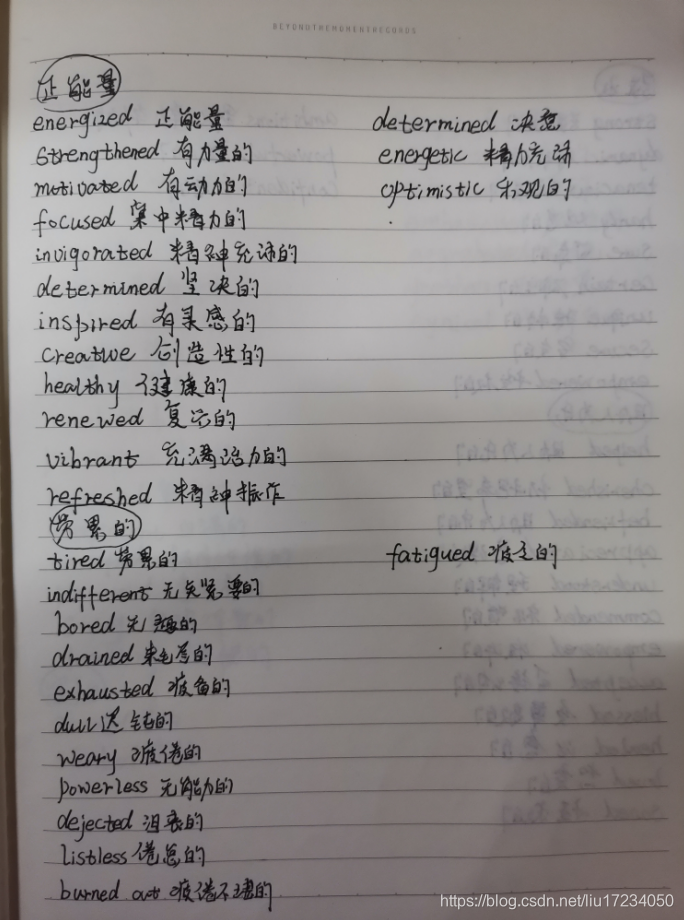 BEYONDTHEMOMENTRECORDS
正能量
energized 正能量
strengthened 有力量的
motivated 有动力的
focused 集中精力的
invigorated 精神充沛的
determined 坚决的
inspired 有灵感的
creative 创造性的
healthy 健康的
renewed 复兴的
vibrant 充满活力的
refreshed 精神振作
determined 决意
energetic 精力充沛
optimistic 乐观的
劳累的
tired 劳累的
indifferent 无关紧要的
bored 无趣的
drained 耗尽的
exhausted 疲惫的
dull 迟钝的
weary 疲倦的
powerless 无能力的
dejected 沮丧的
listless 倦怠的
burned out 疲倦不堪的
fatigued 疲乏的
https://blog.csdn.net/liu17234050